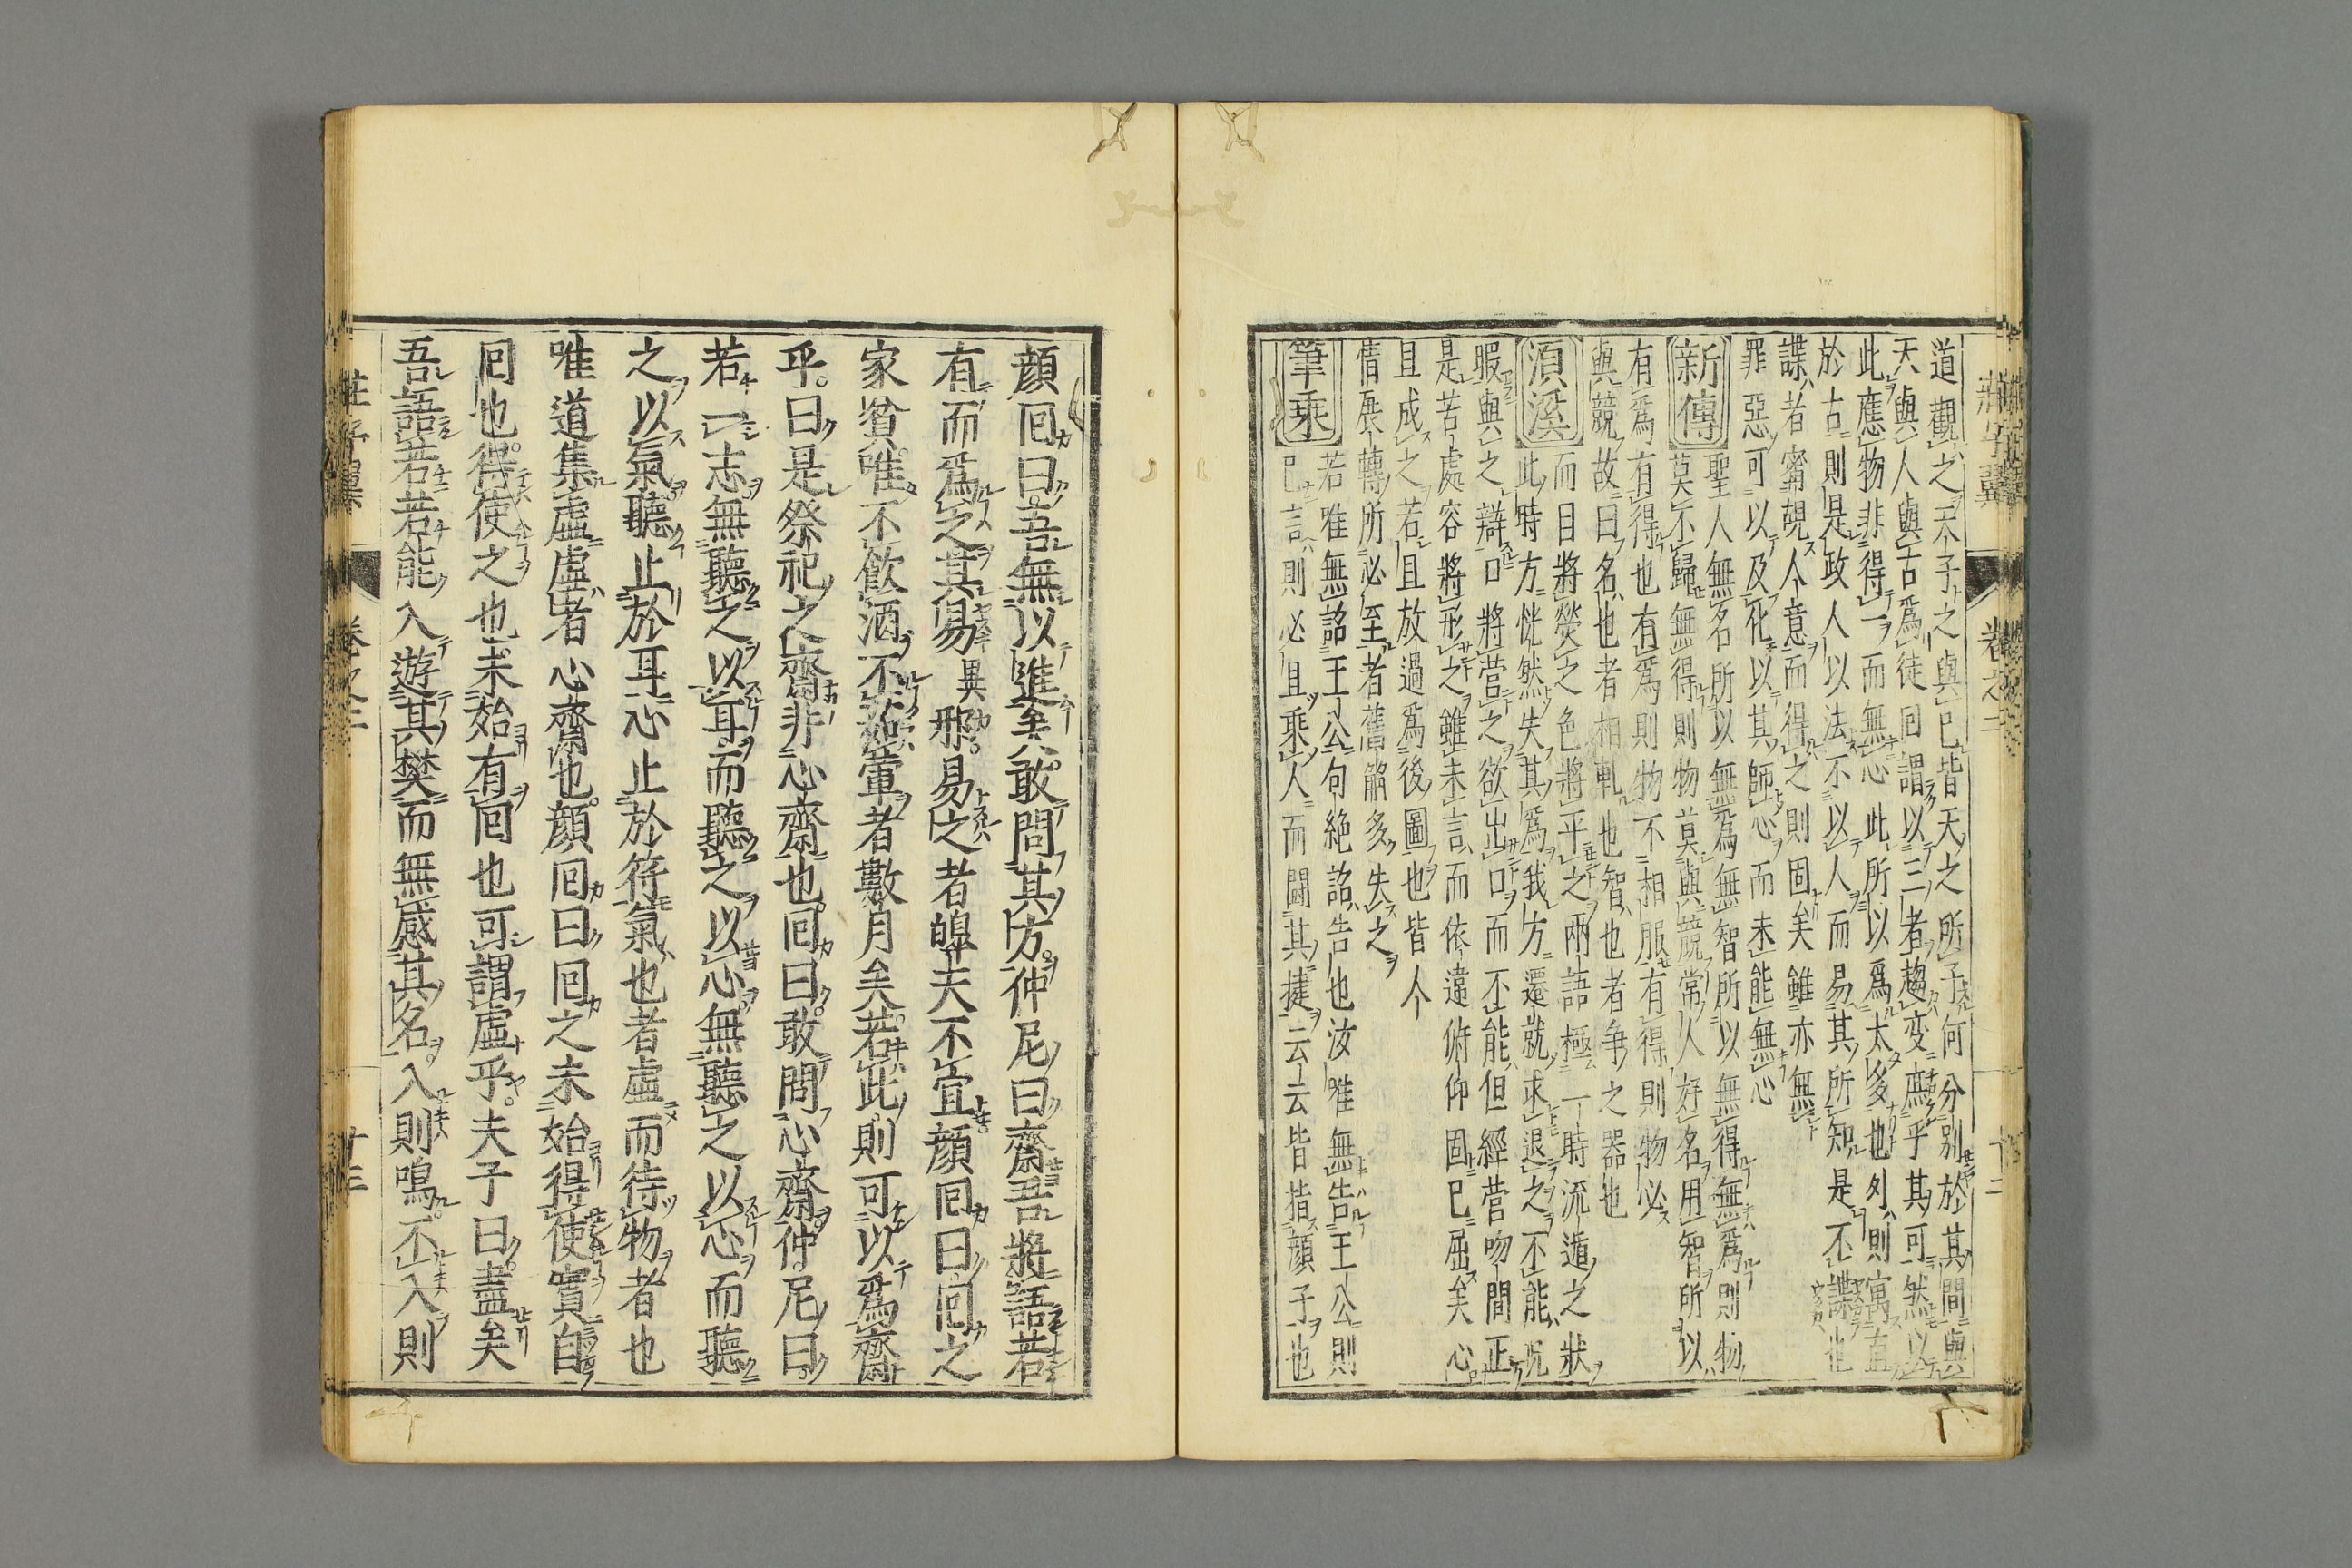 道觀之天子之與已皆天之所子何分別於其間與
天與人與古爲徒回謂以三者趨變庶乎其可然以
此應物非得一而無心此所以爲太多也外則寓直
於古則是政人以法不以人而易其所知是不諜也
諜者審覘人意而得之則固矣雖亦無
罪惡可以及化以其師心而未能無心
新傳
聖人無名所以無爲無智所以無得無爲則物
莫不歸無得則物莫與競常人好名用智所以
有爲有得也有爲則物不相服有得則物必
與競故曰名也者相軋也智也者争之器也
須溪
而目將熒之色將平之兩語極一時流遁之狀
此時方恍然失其爲我方還就求退之不能况
暇與之辯口將营之欲出口而不能但經营吻間正
是苦處容將形之雖未言而依違俯仰固已屈矣心
且成之若且放過爲後圖也皆人
情展轉所必至者舊解多失之
筆乘
若唯無詔王公句絶詔告也汝唯無告王公則
已言則必且乘人而鬭其捷云云皆指顔子也
莊子翼
卷之二
十二
顔回曰吾無以進矣敢問其方仲尼曰齋吾將語若
有而爲之其易異邪易之者皥天不宜顔回曰回之
家貧唯不飲酒不茹葷者數月矣若此則可以爲齋
乎曰是祭祀之齋非心齋也回曰敢問心齋仲尼曰
若一志無聽之以耳而聽之以心無聽之以心而聽
之以氣聽止於耳心止於符氣也者虛而待物者也
唯道集虛虛者心齋也顔回曰回之未始得使實自
回也得使之也未始有回也可謂虛乎夫子曰盡矣
吾語若若能入遊其樊而無感其名入則鳴不入則
莊子翼
卷之二
十三